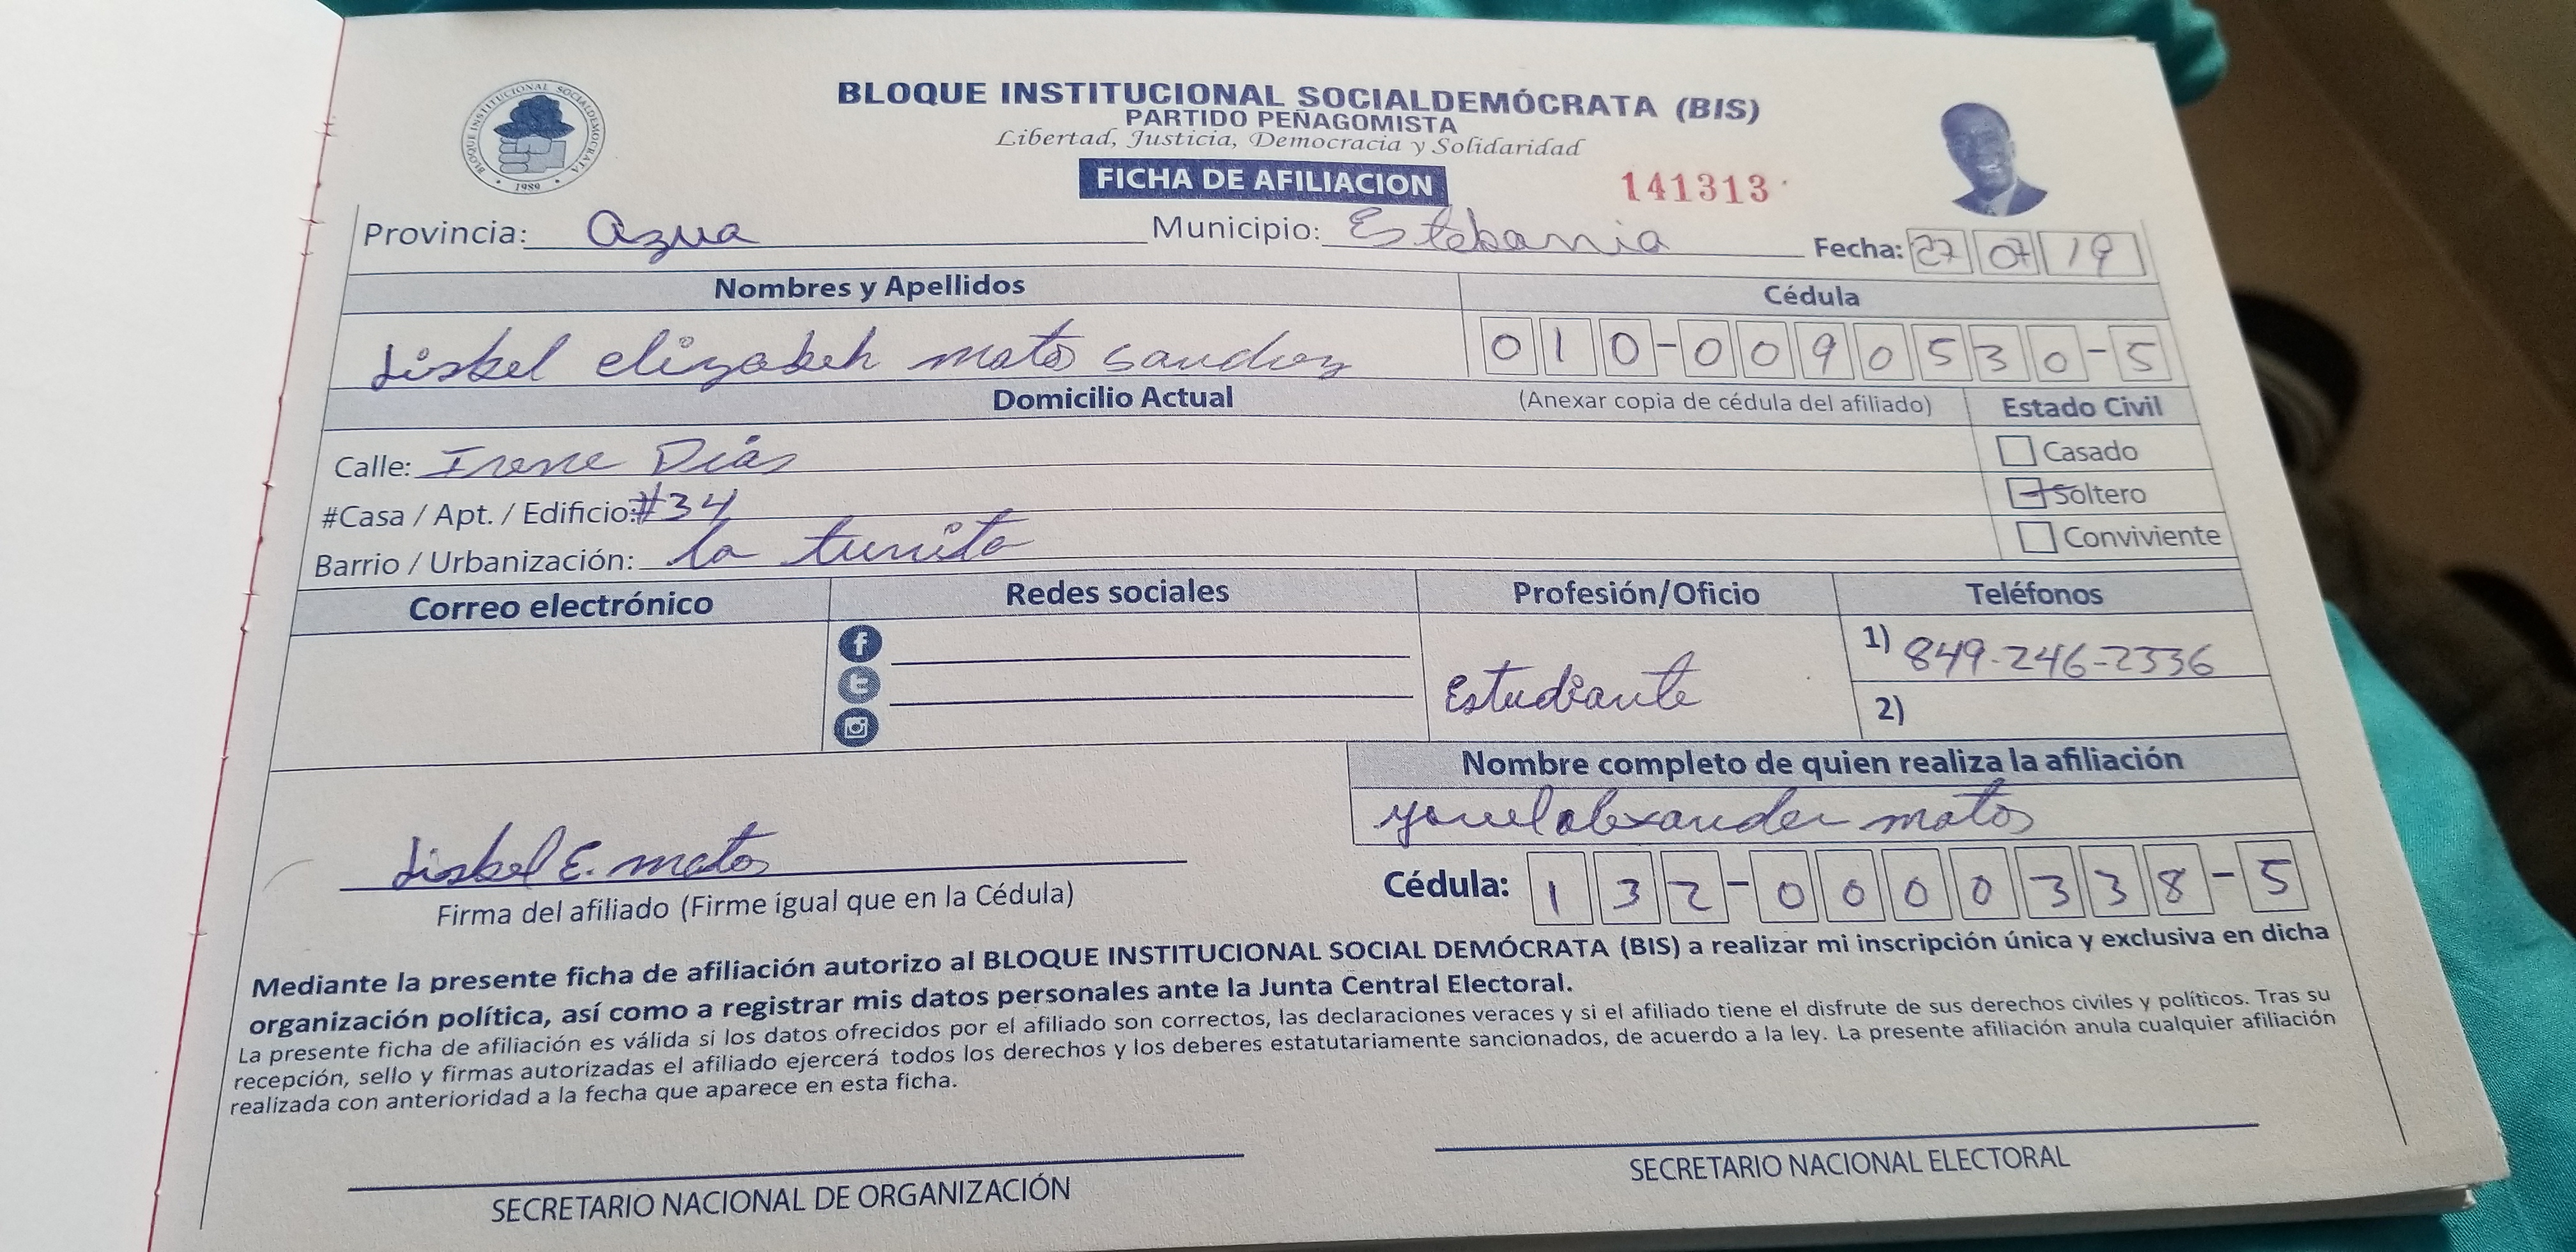 BLOQUE INSTITUCIONAL SOCIALDEMÓCRATA (BIS)
PARTIDO PEÑAGOMISTA
Libertad, Justicia, Democracia y Solidaridad
BLOQUE INSTITUCIONAL SOCIALDEMOCRATA
1989
FICHA DE AFILIACION 141313
Provincia: Azua Municipio: Estebania Fecha: 27 07 19
Nombres y Apellidos Cédula
Lisbel elizabeh matos 010-0090530-5
Domicilio Actual (Anexar copia de cédula del afiliado) Estado Civil
Calle: Irene Días Casado
#Casa / Apt. / Edificio: #34 Soltero
Barrio / Urbanización: la Conviviente
Correo electrónico Redes sociales Profesión/Oficio Teléfonos
1) 849-246-2336
Estudiante
2)
Nombre completo de quien realiza la afiliación
alexander matos
Lisbel E. matos
Firma del afiliado (Firme igual que en la Cédula)
Cédula: 132-0000338-5
Mediante la presente ficha de afiliación autorizo al BLOQUE INSTITUCIONAL SOCIAL DEMÓCRATA (BIS) a realizar mi inscripción única y exclusiva en dicha
organización política, así como a registrar mis datos personales ante la Junta Central Electoral.
La presente ficha de afiliación es válida si los datos ofrecidos por el afiliado son correctos, las declaraciones veraces y si el afiliado tiene el disfrute de sus derechos civiles y políticos. Tras su
recepción, sello y firmas autorizadas el afiliado ejercerá todos los derechos y los deberes estatutariamente sancionados, de acuerdo a la ley. La presente afiliación anula cualquier afiliación
realizada con anterioridad a la fecha que aparece en esta ficha.
SECRETARIO NACIONAL DE ORGANIZACIÓN SECRETARIO NACIONAL ELECTORAL